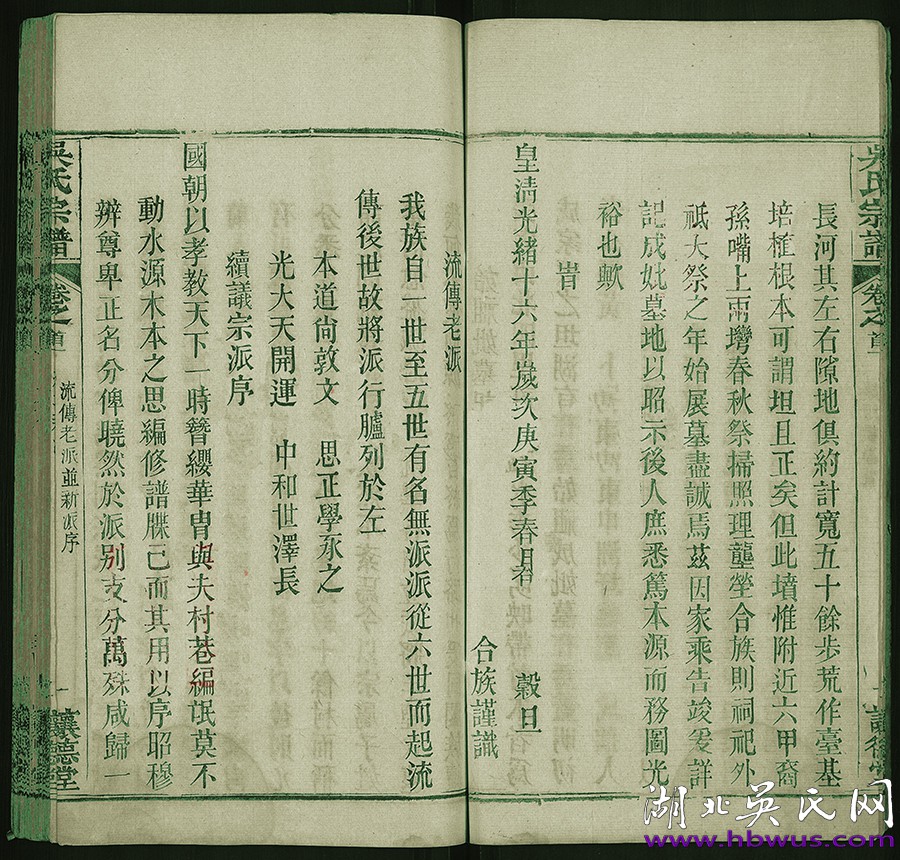 吳氏宗譜
卷之首
長河其左右隙地俱約計寬五十餘步荒作臺基
培植根本可謂坦且正矣但此墳惟附近六甲裔
孫嘴上兩塆春秋祭掃照理壟塋合族則祠祀外
祗大祭之年始展墓盡誠焉茲因家乘告竣爰詳
記成妣墓地以昭示後人庶悉篤本源而務圖光
裕也歟
皇淸光緒十六年歲次庚寅季春月 穀旦
合族謹識
流傳老派
我族自一世至五世有名無派派從六世而起流
傳後世故將派行臚列於左
本道尙敦文 思正學永之
光大天開運 中和世澤長
續議宗派序
國朝以孝敎天下一時簪纓華胄與夫村巷編氓莫不
動水源木本之思編修譜牒已而其用以序昭穆
辨尊卑正名分俾曉然於派別支分萬殊咸歸一
吳氏宗譜
卷之首
流傳老派並新派序
一
讓德堂
湖北吳氏网
www.hbwus.com